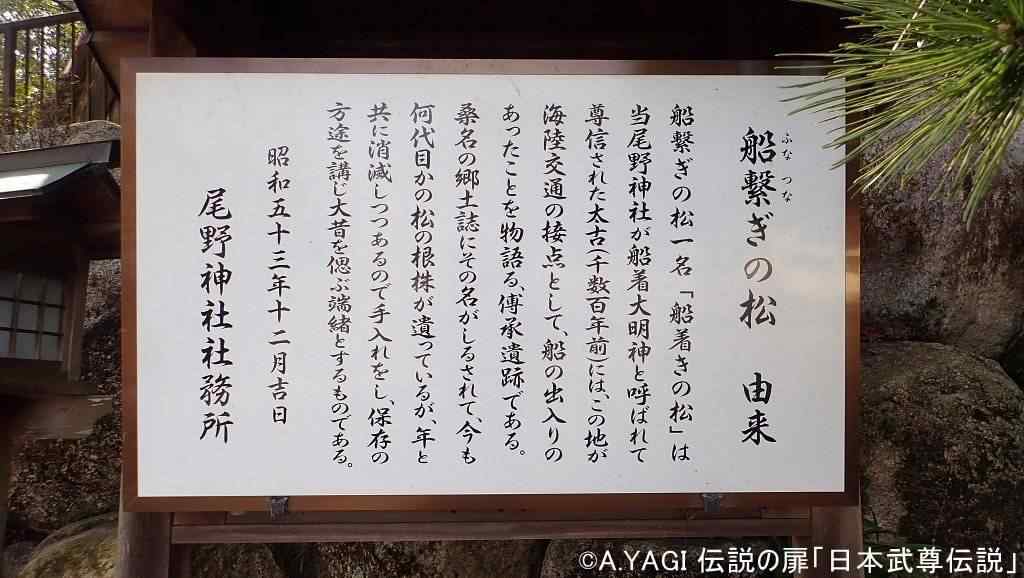 船繋ぎの松　由来
ふな つな
船繋ぎの松一名「船着きの松」は
当尾野神社が船着大明神と呼ばれて
尊信された太古(千数百年前)には、この地が
海陸交通の接点として、船の出入りの
あったことを物語る、傳承遺跡である。
桑名の郷土誌にその名がしるされて、今も
何代目かの松の根株が遺っているが、年と
共に消滅しつつあるので手入れをし、保存の
方途を講じ大昔を偲ぶ端緒とするものである。
昭和五十三年十二月吉日
尾野神社社務所
©A.YAGI 伝説の扉「日本武尊伝説」